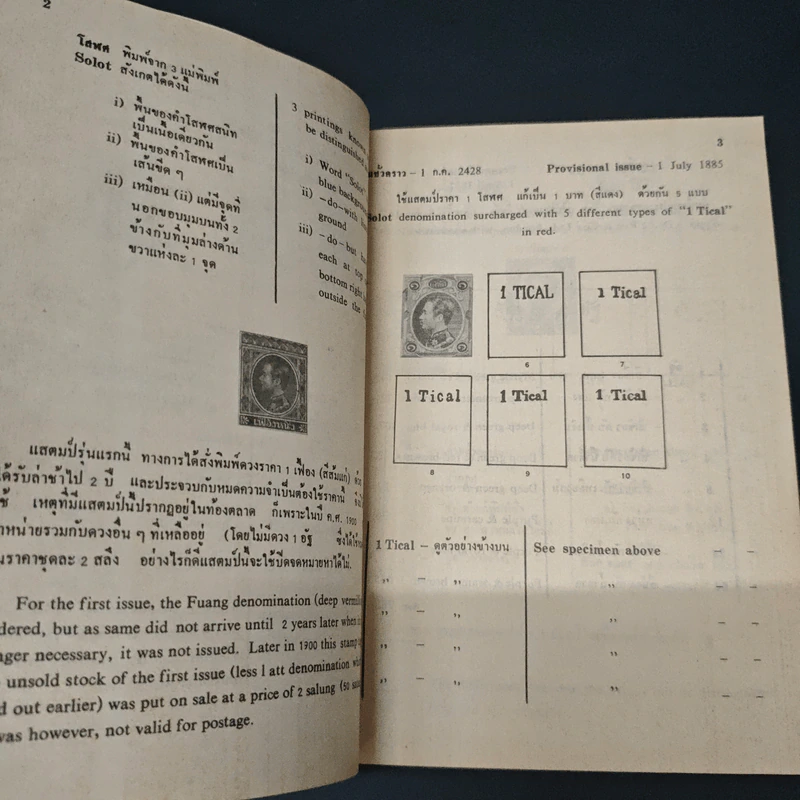 2
โสฬศ พิมพ์จาก 3 แม่พิมพ์
Solot สังเกตได้ดังนี้
i) พื้นของคำโสฬศสนิท
เป็นเนื้อเดียวกัน
ii) พื้นของคำโสฬศเป็น
เส้นขีด ๆ
iii) เหมือน (ii) แต่มีจุดที่
นอกขอบมุมบนทั้ง 2
ข้างกับที่มุมล่างด้าน
ขวาแห่งละ 1 จุด
3 printings
be distinguished
i) Word "Solot"
blue
ii) -do- with
ground
iii) -do- but
each at top
bottom right
outside the
เฟื้องหนึ่ง
แสตมป์รุ่นแรกนี้ ทางการได้สั่งพิมพ์ดวงราคา 1 เฟื้อง (สีส้มแก่)
ได้รับล่าช้าไป 2 ปี และประจวบกับหมดความจำเป็นต้องใช้ราคานี้
ใช้ เหตุที่มีแสตมป์นี้ปรากฏอยู่ในท้องตลาด ก็เพราะในปี ค.ศ. 1900
รวมกับดวงอื่น ๆ ที่เหลืออยู่ (โดยไม่มีดวง 1 อัฐ ซึ่งได้
ราคาชุดละ 2 สลึง อย่างไรก็ดีแสตมป์นี้จะใช้ปิดจดหมายหาได้ไม่.
For the first issue, the Fuang denomination (deep
but as same did not arrive until 2 years later when
necessary, it was not issued. Later in 1900 this stamp
unsold stock of the first issue (less 1 att denomination
out earlier) was put on sale at a price of 2 salung (50
was however, not valid for postage.
3
1 ก.ค. 2428 Provisional issue – 1 July 1885
ใช้แสตมป์ราคา 1 โสฬศ แก้เป็น 1 บาท (สีแดง) ด้วยกัน 5 แบบ
Solot denomination surcharged with 5 different types of "1 Tical"
in red.
1 TICAL
1 Tical
6
7
1 Tical
1 Tical
1 Tical
8
9
10
1 Tical – ดูตัวอย่างข้างบน See specimen above – –
,, – ,, ,, – –
,, – ,, ,, – –
,, – ,, ,, – –
,, – ,, ,, – –